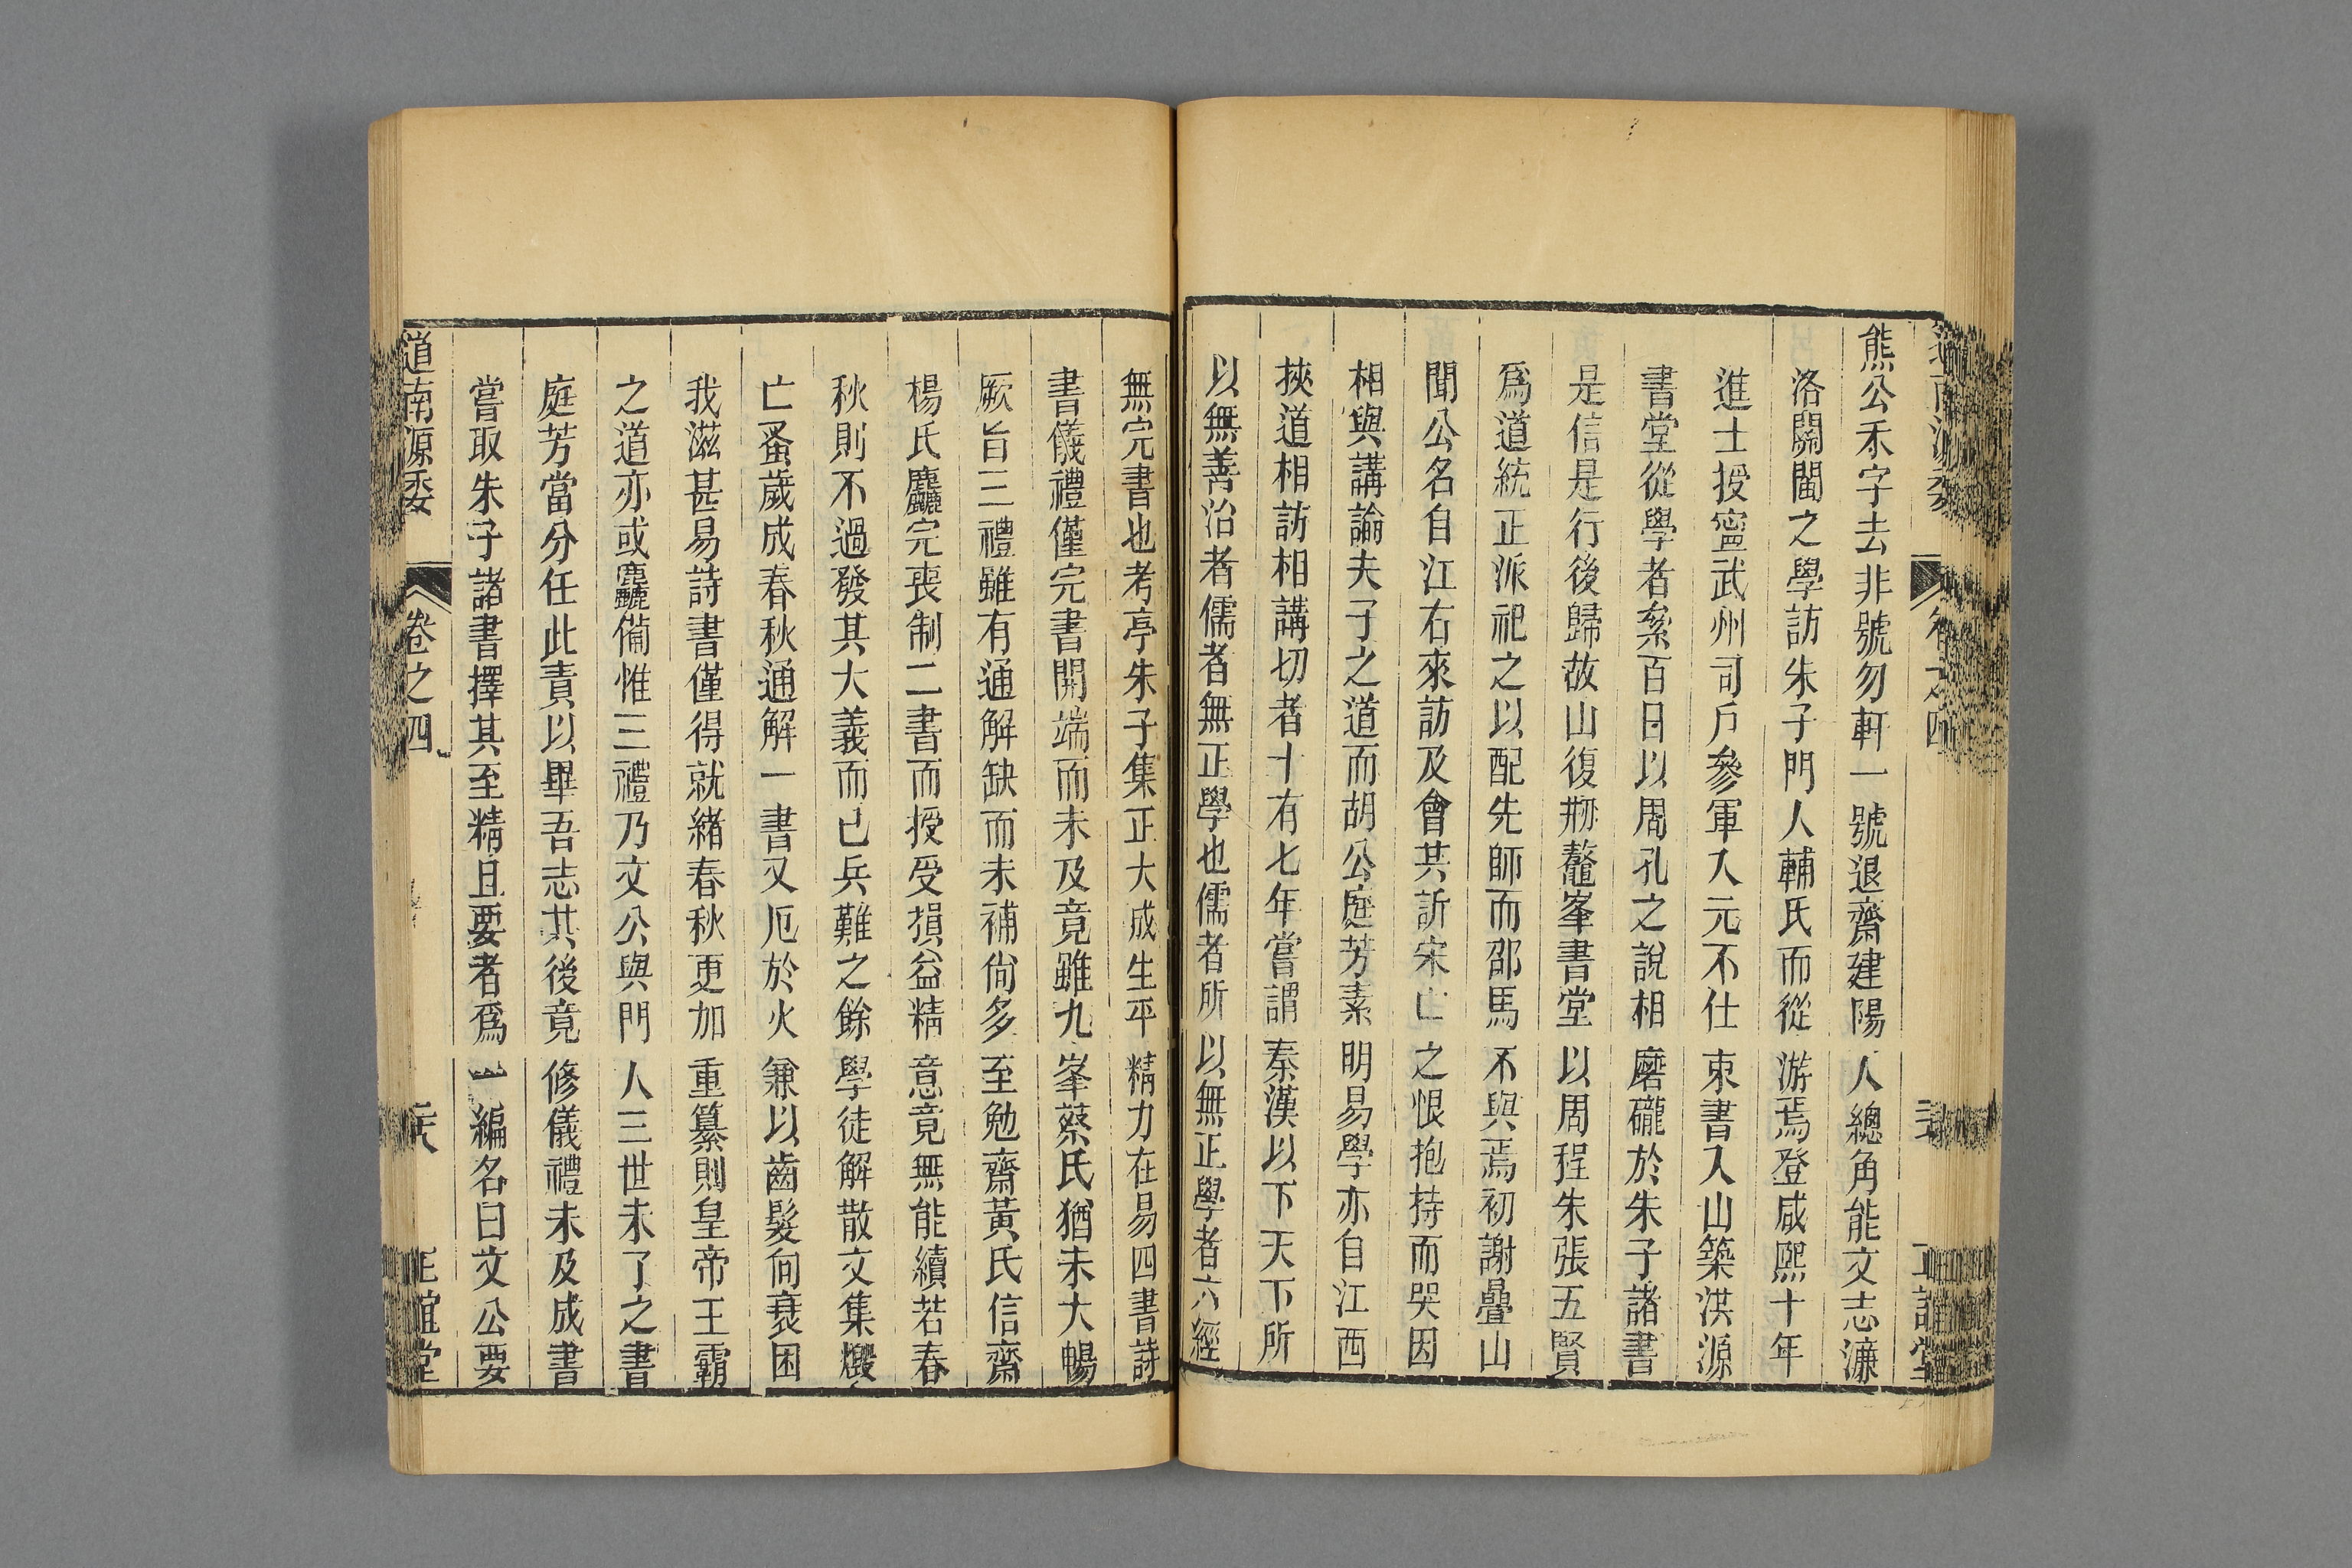 熊公禾字去非號勿軒一號退齋建陽人總角能文志濂
洛關閩之學訪朱子門人輔氏而從游焉登咸熙十年
進士授寧武州司戶參軍入元不仕束書入山築洪源
書堂從學者絫百日以周孔之說相磨礲於朱子諸書
是信是行後歸故山復剏鼇峯書堂以周程朱張五賢
爲道統正派祀之以配先師而邵馬不與焉初謝疊山
聞公名自江右來訪及會共訢宋亡之恨抱持而哭因
相與講論夫子之道而胡公庭芳素明易學亦自江西
挾道相訪相講切者十有七年嘗謂秦漢以下天下所
以無善治者儒者無正學也儒者所以無正學者六經
無完書也考亭朱子集正大成生平精力在易四書詩
書儀禮僅完書開端而未及竟雖九峯蔡氏猶未大暢
厥旨三禮雖有通解缺而未補尙多至勉齋黃氏信齋
楊氏麤完喪制二書而授受損益精意竟無能續若春
秋則不過發其大義而已兵難之餘學徒解散文集燬
亡蚤歲成春秋通解一書又厄於火兼以齒髮向衰困
我滋甚易詩書僅得就緒春秋更加重纂則皇帝王霸
之道亦或麤備惟三禮乃文公與門人三世未了之書
庭芳當分任此責以畢吾志其後竟修儀禮未及成書
嘗取朱子諸書擇其至精且要者爲一編名曰文公要
道南源委
卷之四
正誼堂